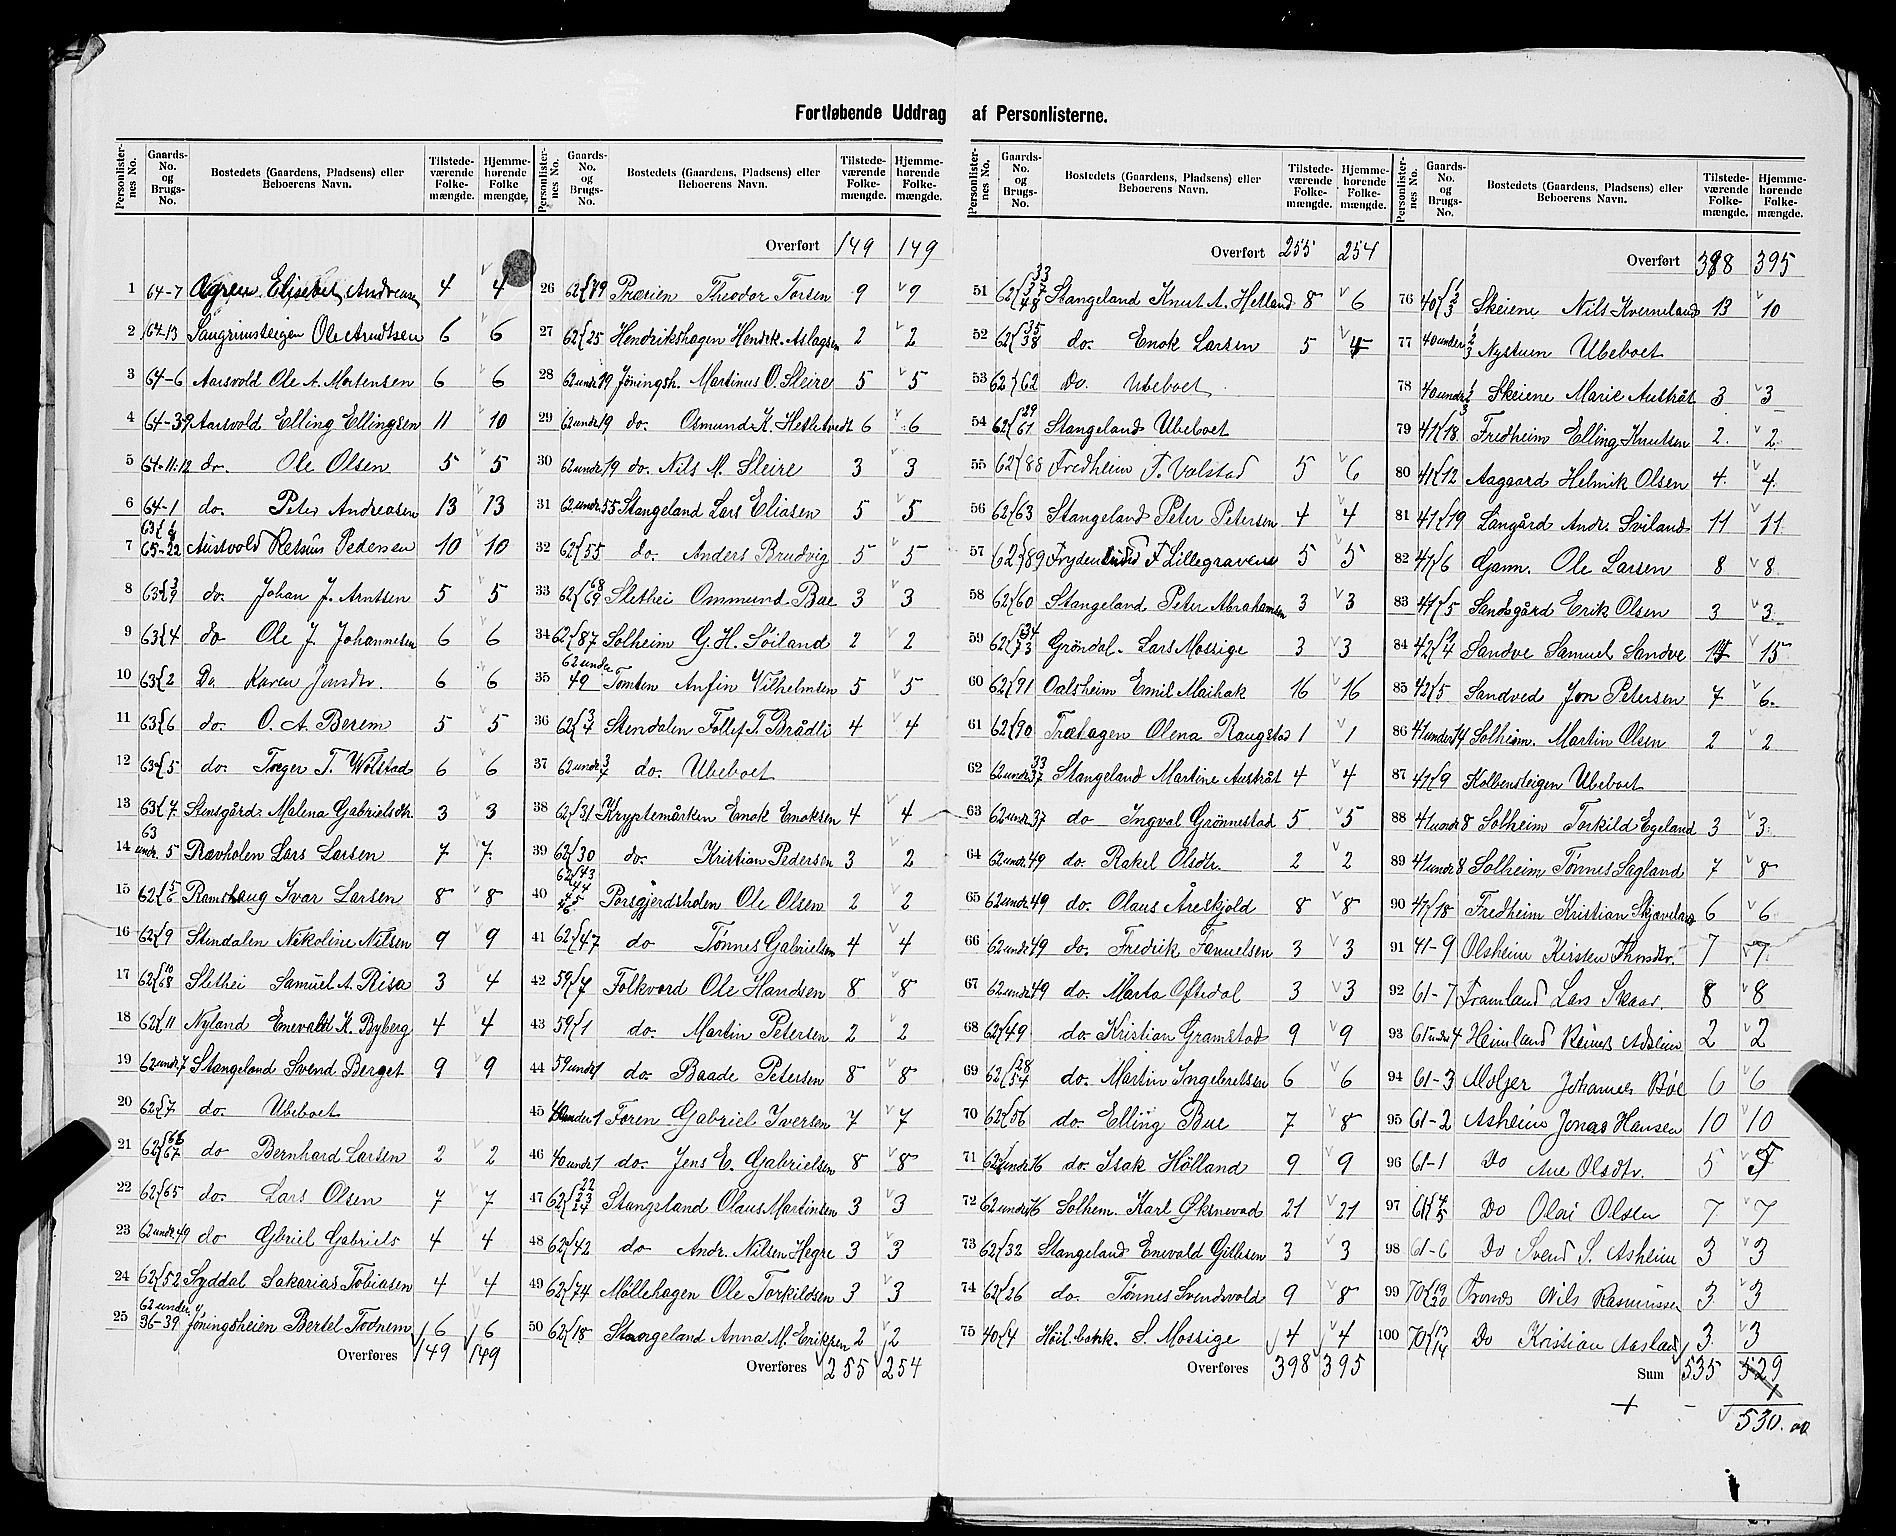 Fortløbende Uddrag af Personlisterne.
Personlister-nes No. | Gaards-No. og Brugs-No. | Bostedets (Gaardens, Pladsens) eller Beboerens Navn. | Tilstede-værende Folke-mængde. | Hjemme-hørende Folke mængde.
1 64-7 Ogren Elisebet Andreasen 4 4
2 64-13 Ole Arndtsen 6 6
3 64-6 Aarsvold Ole A. Mortensen 6 6
4 64-39 Aarsvold Elling Ellingsen 11 10
5 64-11.12 do. Ole Olsen 5 5
6 64-1 do. Peter Andreasen 13 13
7 65-22 Austvold Pedersen 10 10
8 63{3/9 do. Johan J. Arntsen 5 5
9 63{4 do Ole J. Johannesen 6 6
10 63{2 Do Karen Jonsdtr. 6 6
11 63{6 do. O. A. Berem 5 5
12 63{5 do. Tæger T. Wølstad 6 6
13 63{7. Stensgård. Malena Gabrielsdtr. 3 3
14 63 undr. 5 Ravholen Lars Larsen 7 7
15 62{5/6 Ramshaug Ivar Larsen 8 8
16 62{9 Stendalen Nikoline Nilsen 9 9
17 62{10/68 Slethei Samuel A. Risa 3 4
18 62{11 Nyland Enevald K. Byberg 4 4
19 62 undr. 7 Stangeland Svend Berget 9 9
20 62{7 do. Ubeboet
21 62{66/67 do Bernhard Larsen 2 2
22 62{65 do. Lars Olsen 7 7
23 62 undr. 49 do Gbriel Gabriels 4 4
24 62{52 Syddal Sakarias Tobiasen 4 4
25 62 under 36-39 Jøningsheien Bertel Todnem 6 6
Overføres 149 149
Personlister-nes No. | Gaards-No. og Brugs-No. | Bostedets (Gaardens, Pladsens) eller Beboerens Navn. | Tilstede-værende Folke-mængde. | Hjemme-hørende Folke-mængde.
Overført 149 149
26 62{19 Præsien Theodor Torsen 9 9
27 62{25 Hendrikshagen Henrk. Aslagsen 2 2
28 62 undr 19 Jøningsh. Martinus O. Sleire 5 5
29 62 undr 19 do. Osmund K. Hetletvedt 6 6
30 62 undr 19 do. Nils M. Sleire 3 3
31 62 undr. 55 Stangeland Lars Eliasen 5 5
32 62{55 do. Anders Brudvig 5 5
33 62{68/69 Slethei Ommund Bae 3 3
34 62{87 Solheim G. H. Soiland 2 2
35 62 under 49 Tomten Anfin Vilhelmsen 5 5
36 62{3/4 Stendalen Tollef T. Brådli 4 4
37 62 undr 3/7 do. Ubeboet
38 62{31 Kryptemårken Enok Enoksen 4 4
39 62{30 do. Kristian Pedersen 3 2
40 62{43 44 45 46 Porsgjerdsholen Ole Olsen 2 2
41 62{47 do Tønnes Gabrielsen 4 4
42 59{7 Folkvord Ole Handsen 8 8
43 59{1 do. Martin Petersen 2 2
44 59 undr 1 do. Baade Petersen 8 8
45 40 under 1 Foren Gabriel Iversen 7 7
46 40 undr. 1 do. Jens E. Gabrielsen 8 8
47 62{22 23 24 Stangeland Olaus Martinsen 3 3
48 62{42 do Andr. Nilsen Hegre 3 3
49 62{74 Møllehagen Ole Torkildsen 3 3
50 62{18 Stangeland Anna M. Eriksen 2 2
Overføres 255 254
Personlister-nes No. | Gaards-No. og Brugs-No. | Bostedets (Gaardens, Pladsens) eller Beboerens Navn. | Tilstede-værende Folke-mængde. | Hjemme-hørende Folke-mængde.
Overført 255 254
51 62{33 37 48 Stangeland Knut A. Helland 8 6
52 62{35/38 do. Enok Larsen 5 4
53 62{62 Do. Ubeboet
54 62{29/61 Stangeland Ubeboet
55 62{88 Fredheim T. Valstad 5 6
56 62{63 Stangeland Peter Petersen 4 4
57 62{89 Frydenlund T Lillegraven 5 5
58 62{60 Stangeland Peter Abrahamsen 3 3
59 62{34/73 Grøndal. Lars Mossige 3 3
60 62{91 Oalsheim Emil Maihak 16 16
61 62{90 Træhagen Olena Raugstad 1 1
62 62 undr. 33/37 Stangeland Martine Austråt 4 4
63 62 undr. 37 do Ingval Grønnestad 5 5
64 62 undr. 49 do. Rakel Olsdtr. 2 2
65 62 undr. 49 do. Olaus Åreskjold 8 8
66 62 undr 49 Do. Fredrik Samuelsen 3 3
67 62 undr 49 do. Marta Oftedal 3 3
68 62{49 do. Kristian Gramstad 9 9
69 62{28/54 do. Martin Ingebretsen 6 6
70 62{56 do. Elling Bue 7 8
71 62 undr 16 do. Isak Hølland 9 9
72 62 undr 16 Solhem. Karl Øksnevad 21 21
73 62{32 Stangeland Enevald Gillesen 3 3
74 62{26 do. Tønnes Svendsvold 9 8
75 40{4 S. Mossige 4 4
Overføres 398 395
Personlister-nes No. | Gaards-No. og Brugs-No. | Bostedets (Gaardens, Pladsens) eller Beboerens Navn. | Tilstede-værende Folke-mængde. | Hjemme-hørende Folke-mængde.
Overført 398 395
76 40{1 2 3 Skeiene Nils Kverneland 13 10
77 40 under 1 2 3 Nystum Ubeboet
78 40 undr. 1/3 Skeiene Marie Austråt 3 3
79 41{18. Fredheim Elling Knutsen 2 2
80 41{12 Aagaard Helmik Olsen 4 4
81 41{19 Langård Andr. Sviland 11 11
82 41{6 Gann. Ole Larsen 8 8
83 41{5 Sandsgård Erik Olsen 3 3
84 42{1/4 Sandve Samuel Sandve 15
85 42{5 Sandved Jon Petersen 7 6
86 41 under 14 Solheim. Martin Olsen 2 2
87 41{9 Kolbensteigen Ubeboet
88 41 undr 8 Solheim Torkild Egeland 3 3
89 41 undr 8 Solheim Tønnes Sagland 7 8
90 47{18 Fredheim Kristian 6 6
91 41-9 Olsheim Kirsten 7 7
92 61-7 Framland Lars Skaar. 8 8
93 61 under 4 Heimland 2 2
94 61-3 Moljer Johannes Bøe 6 6
95 61-2 Asheim Jonas Hansen 10 10
96 61-1 Do Ane Olsdtr. 5 5
97 61{4/5 Do Olai Olsen 7 7
98 61-6 Do Svend S. Asheim 3 3
99 70{19/20 Nils Rasmussen 3 3
100 70{13/14 Do Kristian Aasland 3 3
Sum 535 529
1
+ - 530.